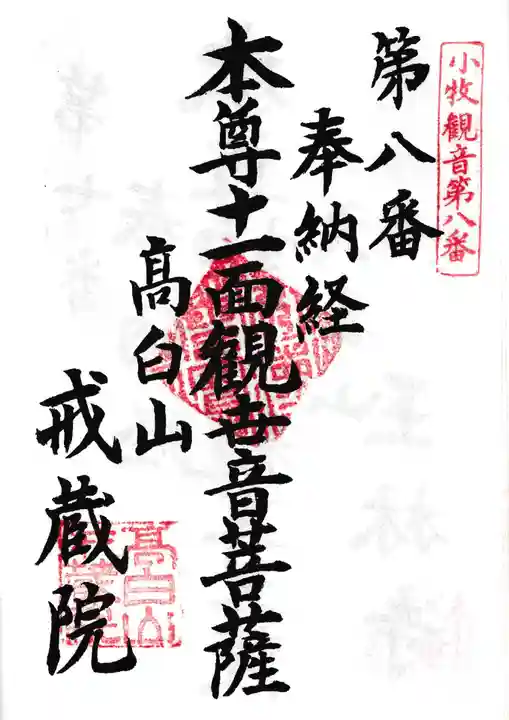 小牧観音第八番
第八番
奉納経
本尊十一面観世音菩薩
高白山
戒蔵院
高白山